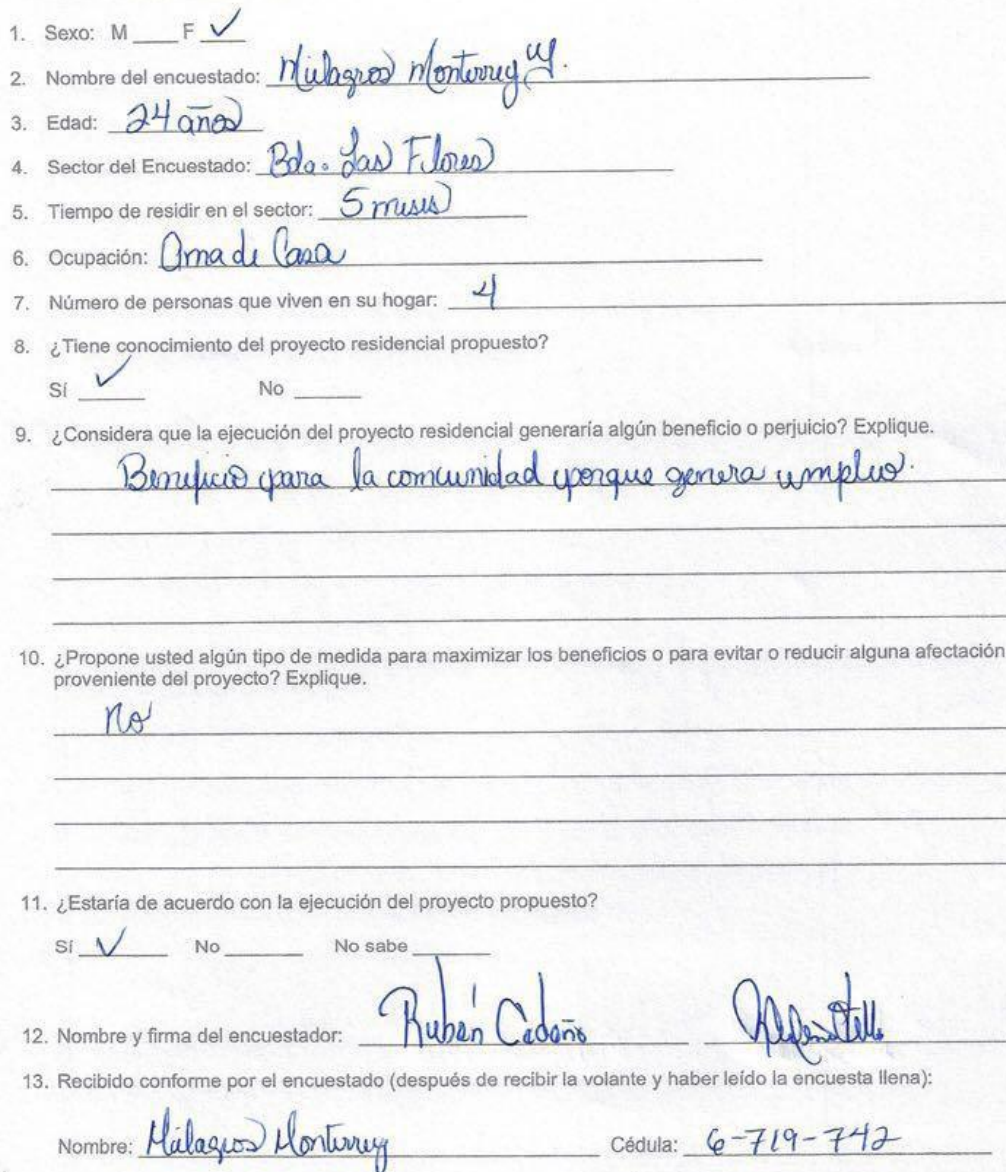 1. Sexo: M ____ F ✓
2. Nombre del encuestado: Milagros Monterrey
3. Edad: 24 años
4. Sector del Encuestado: Bda. Las Flores
5. Tiempo de residir en el sector: 5 meses
6. Ocupación: Ama de Casa
7. Número de personas que viven en su hogar: 4
8. ¿Tiene conocimiento del proyecto residencial propuesto?
Sí ✓ No ____
9. ¿Considera que la ejecución del proyecto residencial generaría algún beneficio o perjuicio? Explique.
Beneficio para la comunidad porque genera empleo.
10. ¿Propone usted algún tipo de medida para maximizar los beneficios o para evitar o reducir alguna afectación
proveniente del proyecto? Explique.
no
11. ¿Estaría de acuerdo con la ejecución del proyecto propuesto?
Sí ✓ No ____ No sabe ____
12. Nombre y firma del encuestador: Rubén Cedeño
13. Recibido conforme por el encuestado (después de recibir la volante y haber leído la encuesta llena):
Nombre: Milagros Monterrey Cédula: 6-719-742